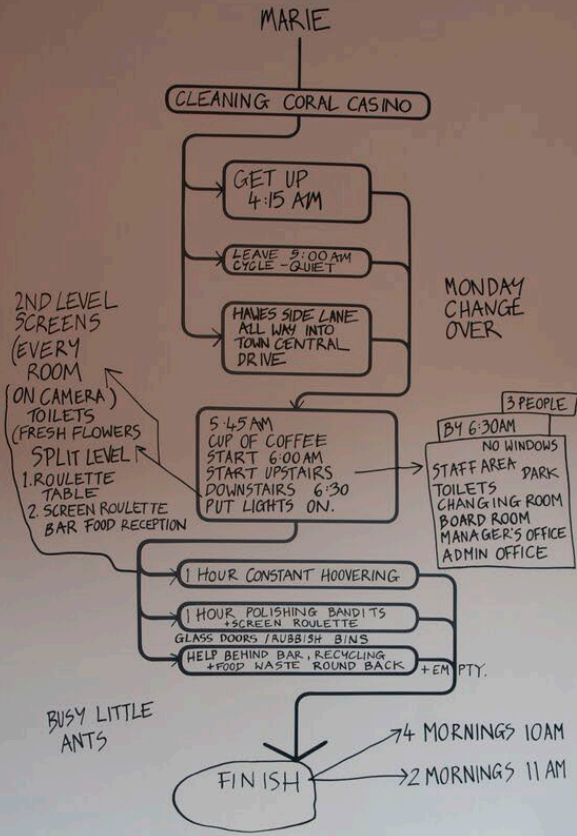 MARIE
CLEANING CORAL CASINO
GET UP
4:15 AM
LEAVE 5:00AM
CYCLE - QUIET
HAWES SIDE LANE
ALL WAY INTO
TOWN CENTRAL
DRIVE
MONDAY
CHANGE
OVER
2ND LEVEL
SCREENS
(EVERY
ROOM
ON CAMERA)
TOILETS
(FRESH FLOWERS
SPLIT LEVEL
1. ROULETTE
TABLE
2. SCREEN ROULETTE
BAR FOOD RECEPTION
5.45AM
CUP OF COFFEE
START 6:00AM
START UPSTAIRS
DOWNSTAIRS 6:30
PUT LIGHTS ON.
3 PEOPLE
BY 6:30AM
NO WINDOWS
STAFF AREA DARK
TOILETS
CHANGING ROOM
BOARD ROOM
MANAGER'S OFFICE
ADMIN OFFICE
1 HOUR CONSTANT HOOVERING
1 HOUR POLISHING BANDITS
+SCREEN ROULETTE
GLASS DOORS / RUBBISH BINS
HELP BEHIND BAR, RECYCLING
+FOOD WASTE ROUND BACK + EMPTY.
BUSY LITTLE
ANTS
FINISH
4 MORNINGS 10AM
2 MORNINGS 11 AM